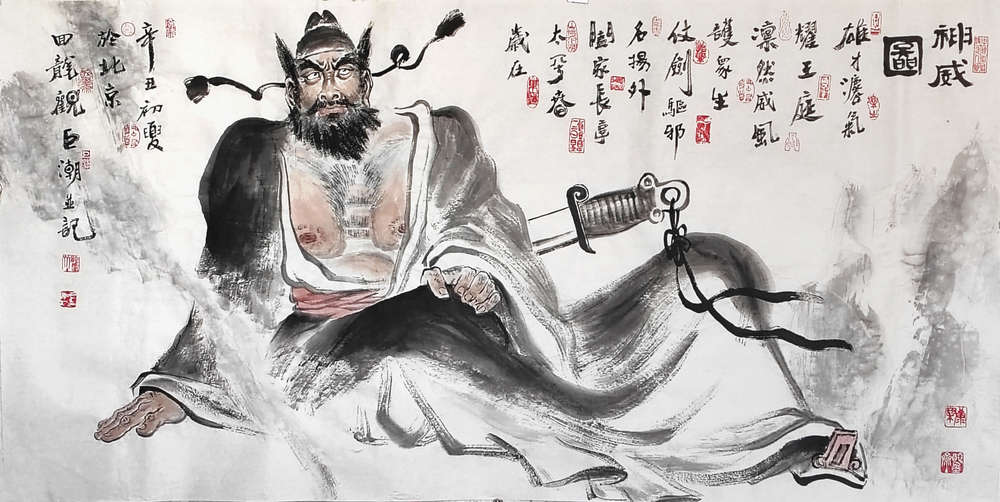 神威
圖
雄才濠氣
耀王庭
凛然威風
護衆生
仗劍驅邪
名揚外
闔家長享
太平春
歲在
辛丑初夏
於北京
回龍觀巨潮並記